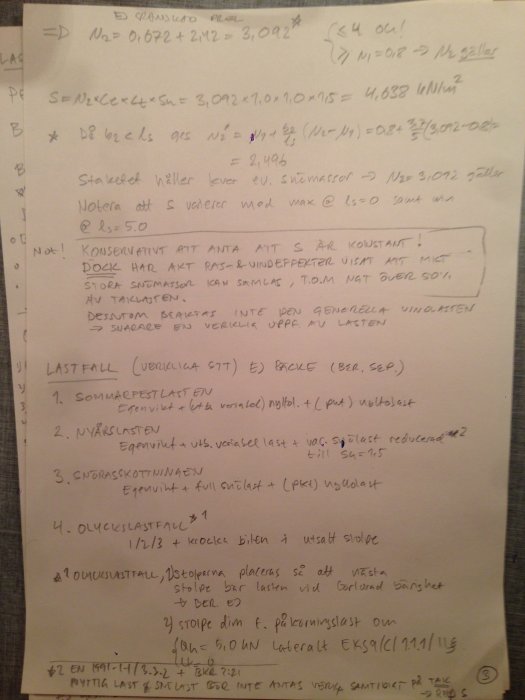 =D μ₂ = 0,672 + 2,42 = 3,092*
{ ≤ 4 OK!
≥ μ₁ = 0,8 → μ₂ gäller
S = μ₂ × Ce × Ct × Sk = 3,092 × 1,0 × 1,0 × 1,5 = 4,638 kN/m²
* Då b₂ < ls ges μ₂ = μ₁ + (μ₂ - μ₁) = 0,8 + (3,092 - 0,8) =
= 2,496
Staketet håller kvar ev. snömassor → μ₂ = 3,092 gäller
Notera att S varierar med max @ ls = 0 samt min
@ ls = 5.0
Not! KONSERVATIVT ATT ANTA ATT S ÄR KONSTANT!
DOCK HAR ÄKT RAS- & VINDEFFEKTER VISAT ATT MKT
STORA SNÖMASSOR KAN SAMLAS, T.O.M NGT ÖVER 50%
AV TAKLASTEN.
DESSUTOM BEAKTAS INTE DEN GENERELLA VINDLASTEN
→ SNARARE EN VERKLIG UPPF AV LASTEN
LASTFALL (VERKLIGA SITT) EJ RÄCKE (BER. SEP.)
1. SOMMARFESTLASTEN
Egenvikt + (utb. variabel) nyttol. + (pkt) nyttolast
2. NYÅRSLASTEN
Egenvikt + utb. variabel last + snölast reducerad *2
till Sk = 1,5
3. SNÖRASSKOTTNINGEN
Egenvikt + full snölast + (pkt) nyttolast
4. OLYCKSLASTFALL *1
1/2/3 + krocka bilen i utsatt stolpe
*1 OLYCKSLASTFALL, 1) Stolparna placeras så att nästa
stolpe bär lasten vid förlorad bärighet
→ BER EJ
2) stolpe dim f. påkörningslast om
{ Qk = 5,0 kN lateralt EKS9/C/
*2 EN 1991-1-1/3.3.2 + BKR
NYTTIG LAST & SNÖLAST BÖR INTE ANTAS VERKA SAMTIDIGT PÅ TAK
3